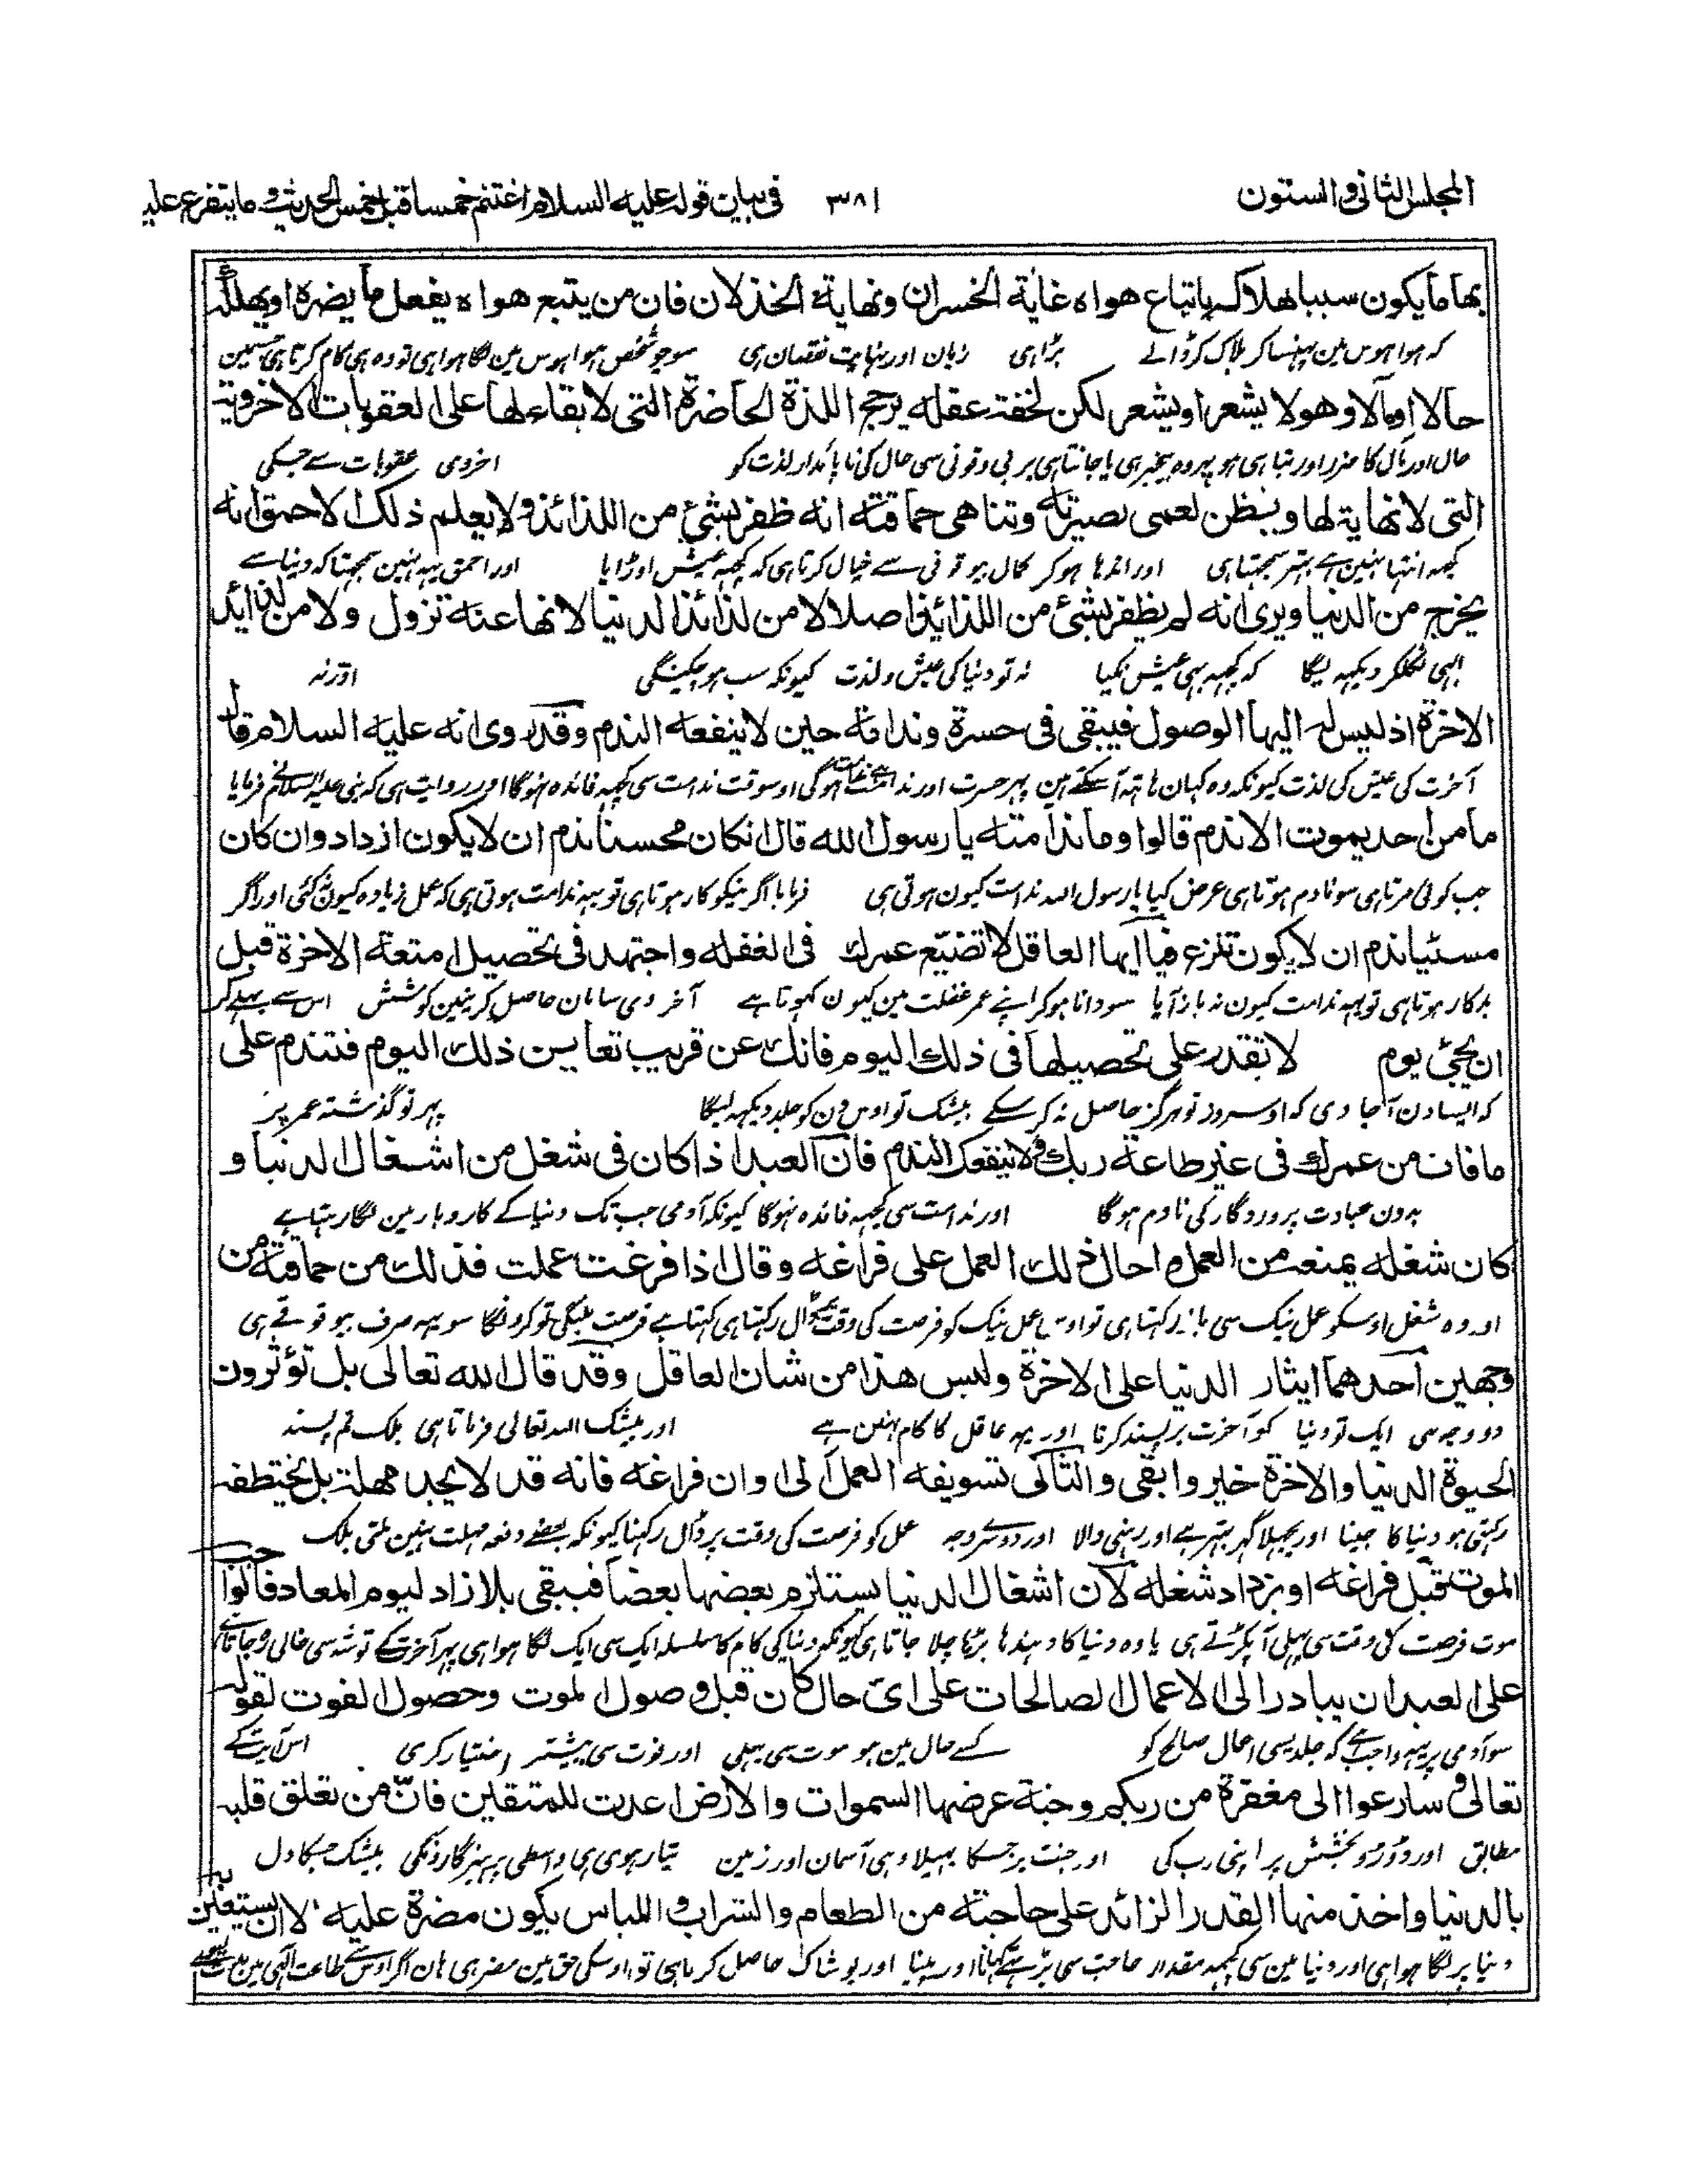 المجلس الثانی و الستون ٣٨١ فی بیان قوله علیه السلام اغتنم خمسا قبل خمس الحدیث و ما یتفرع علیه
بها ما یکون سببا لهلاکه باتباع هواه غایة الخسران ونهایة الخذلان فان من یتبع هواه یفعل ما یضره او یهلکه
که هوا هوس مین پهنسا کر هلاک کر ڈالے بڑا هی زیان اور نهایت نقصان هی سو جو شخص هوا هوس مین لگا هوا هی تو وه هی کام کرتا هی جسمین
حالا او مآلا وهو لا یشعر او یشعر لکن لخفة عقله یرجح اللذة الحاضرة التی لا بقاء لها علی العقوبات الاخرویة
حال اور مآل کا ضرر اور تباهی هو پهر وه بیخبر هی یا جانتا هی پر بی وقوفی سی حال کی نا پائدار لذت کو اخروی عقوبات سے جسکی
التی لا نهایة لها ویظن لعمی بصیرته وتناهی حماقته انه ظفر بشئ من اللذائذ ولا یعلم ذلک الاحمق انه
کچهه انتها نهین هے بهتر سمجهتا هی اور اندها هو کر کمال بیوقوفی سے خیال کرتا هی که کچهه عیش اوڑایا اور احمق یهه نهین سمجهتا که دنیا سے
یخرج من الدنیا ویری انه لم یظفر بشئ من اللذائذ اصلا لا من لذائذ الدنیا لانها عنه تزول ولا من لذائذ
ابهی نکلکر دیکهه لیگا که کچهه بهی عیش نکیا نه تو دنیا کی عیش و لذت کیونکه سب هو چکینگی اور نه
الاخرة اذ لیس له الیها الوصول فیبقی فی حسرة وندامة حین لا ینفعه الندم وقد روی انه علیه السلام قال
آخرت کی عیش کی لذت کیونکه وه کهان هاتهه آ سکتے هین پهر حسرت اور ندامت هوگی اوسوقت ندامت سی کچهه فائده نهوگا اور روایت هی که نبی علیه السلام نے فرمایا
ما من احد یموت الا ندم قالوا وما ندامته یا رسول الله قال ان کان محسنا ندم ان لا یکون ازداد وان کان
جب کوئی مرتا هی سو نادم هوتا هی عرض کیا یا رسول الله ندامت کیون هوتی هی فرمایا اگر نیکو کار هوتا هی تو یهه ندامت هوتی هی که عمل زیاده کیون نکئی اور اگر
مسئیا ندم ان لا یکون نزع فیا ایها العاقل لا تضیع عمرک فی الغفلة واجتهد فی تحصیل امتعة الاخرة قبل
بدکار هوتا هی تو یهه ندامت کیون نه باز آیا سو دانا هوکر اپنے عمر غفلت مین کیون کهوتا هے آخروی سامان حاصل کرنیمین کوشش اس سے پهلے کر
ان یجئ یوم لا تقدر علی تحصیلها فی ذلک الیوم فانک عن قریب تعاین ذلک الیوم فتندم علی
که ایسا دن آجا وی که اوسروز تو هرگز حاصل نه کر سکے بیشک تو اوس دن کو جلد دیکهه لیگا پهر تو گذشته عمر پر
ما فات من عمرک فی غیر طاعة ربک ولا ینفعک الندم فان العبد اذا کان فی شغل من اشغال الدنیا و
بدون عبادت پروردگار کی نادم هوگا اور ندامت سی کچهه فائده نهوگا کیونکه آدمی جب تک دنیا کے کاروبار مین لگا رهتا هے
کان شغله یمنعه من العمل و احال ذلک العمل علی فراغه وقال اذا فرغت عملت فذلک من حماقته من
اور وه شغل اوسکو عمل نیک سی باز رکهتا هی تو اوس عمل نیک کو فرصت کی وقت پر ڈال رکهتا هی کهتا هے فرصت ملیگی تو کرونگا سو یهه صرف بیوقوفے هی
وجهین احدهما ایثار الدنیا علی الاخرة ولیس هذا من شان العاقل وقد قال الله تعالی بل تؤثرون
دو وجه سی ایک تو دنیا کو آخرت پر پسند کرنا اور یهه عاقل کا کام نهین هے اور بیشک الله تعالی فرماتا هی بلکه تم پسند
الحیوة الدنیا والاخرة خیر وابقی والثانی تسویفه العمل الی اوان فراغه فانه قد لا یجد مهلة بل یختطفه
رکهتی هو دنیا کا جینا اور پچهلا گهر بهتر هے اور رهنی والا اور دوسرے وجه عمل کو فرصت کی وقت پر ڈال رکهنا کیونکه بعضے دفعه مهلت نهین ملتی بلکه
الموت قبل فراغه او یزداد شغله لان اشغال الدنیا یستلزم بعضها بعضا فیبقی بلا زاد لیوم المعاد فالواجب
موت فرصت کی وقت سی پهلی آ پکڑتے هی یا وه دنیا کا دهندها بڑها چلا جاتا هی کیونکه دنیا کی کام کا سلسله ایک سی ایک لگا هوا هی پهر آخرت کے توشه سی خالی ره جاتا هے
علی العبد ان یبادر الی الاعمال الصالحات علی ای حال کان قبل وصول الموت وحصول الفوت لقوله
سو آدمی پر یهه واجب هے که جلدیسی اعمال صالح کو کسے حال مین هو موت سی پهلی اور فوت سی پیشتر اختیار کری اس آیت کے
تعالی وسارعوا الی مغفرة من ربکم وجنة عرضها السموات والارض اعدت للمتقین فان من تعلق قلبه
مطابق اور دوڑو بخشش پر اپنی رب کی اور جنت پر جسکا پهیلاو هی آسمان اور زمین تیار هوی هی واسطی پرهیزگارونکی بیشک جسکا دل
بالدنیا واخذ منها القدر الزائد علی حاجته من الطعام والشراب واللباس یکون مضرة علیه الا ان یستعین به
دنیا پر لگا هوا هی اور دنیا مین سی کچهه مقدار حاجت سی بڑهتے کهانا اور پینا اور پوشاک حاصل کرتا هی تو اوسکی حق مین مضر هی هان اگر اوس سے طاعت الهی مین